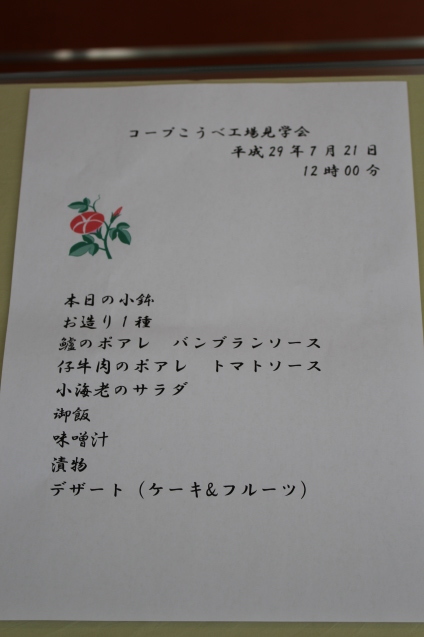 コープこうべ工場見学会
平成29年7月21日
12時00分
本日の小鉢
お造り1種
鱸のポアレ　バンブランソース
仔牛肉のポアレ　トマトソース
小海老のサラダ
御飯
味噌汁
漬物
デザート（ケーキ&フルーツ）